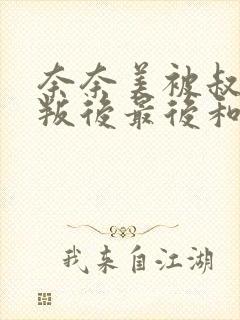 奈奈美被叔
叛後最後和
我来自江湖